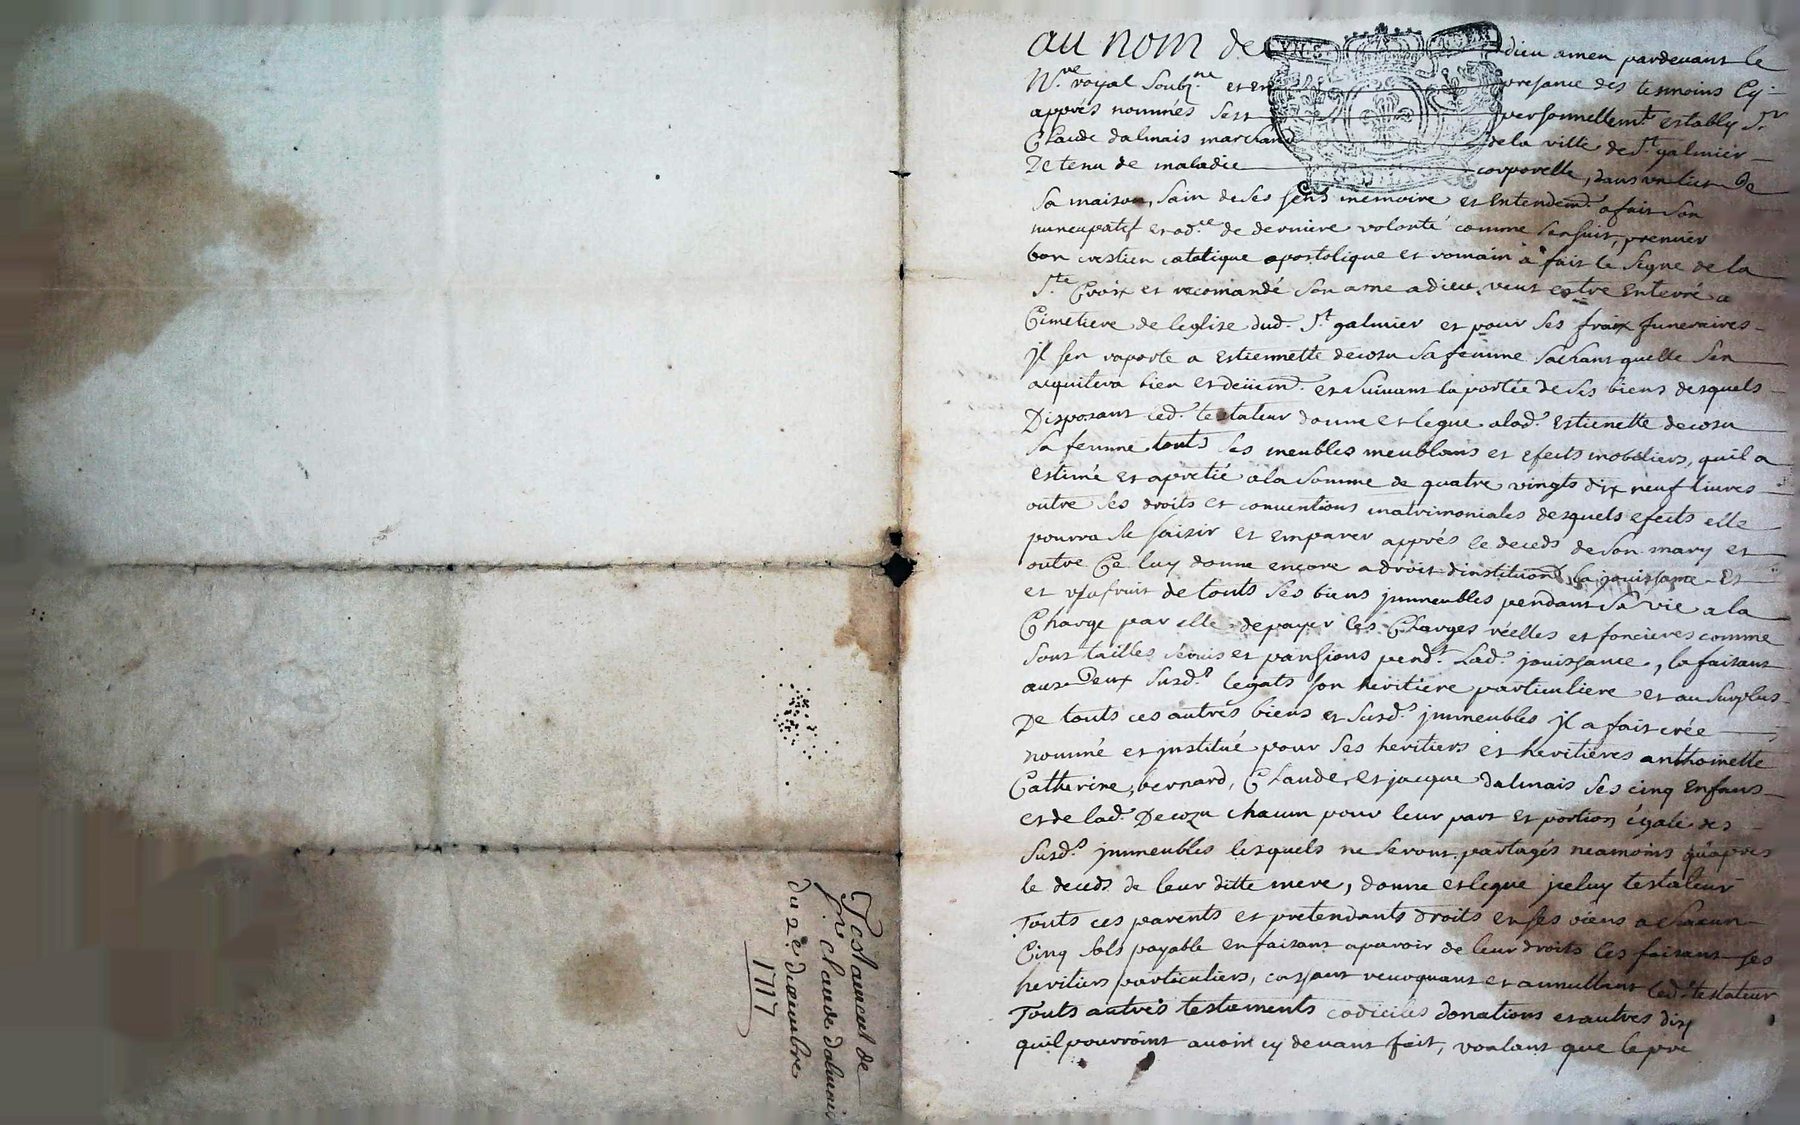 au nom de dieu amen pardevant le
N.re royal soub.né et en presance des tesmoins cy
appres nommés personnellem.t estably s.r
Claude dalmais marchand de la ville de s.t galmier
detenu de maladie corporelle, dans un lict de
sa maison, sain de ses sens memoire et entendem.t a fait son
nuncupatif et de derniere volonté comme sensuit, premier
bon crestien catolique apostolique et romain a fait le signe de la
s.te Croix et recomandé son ame a dieu, veut estre enterré a
Cimetiere de leglise dud. s.t galmier et pour ses fraix funeraires
jl sen raporte a estiennette decozu sa femme sachant quelle sen
aquitera bien et deüem.t et suivant la portée de ses biens desquels
Disposant led. testateur donne et legue a lad. estienette decozu
sa femme touts ses meubles meublans et efects mobiliers, quil a
estimé et apretié a la somme de quatre vingts dix neuf livres
outre ses droits et conventions matrimoniales desquels efects elle
pourra se saisir et emparer apprés le deceds de son mary et
outre Ce luy donne encore a droit dinstitution la jouissance et
et usufruit de touts ses biens jmmeubles pendant sa vie a la
Charge par elle de payer les Charges réelles et foncieres comme
sont tailles et pansions pend.t lad. jouissance, la faisant
aux deux susd.s legats son heritiere particuliere et au surplus
De touts ces autres biens et susd.s jmmeubles jl a fait crée
nommé et jnstitué pour ses heritiers et heritiéres anthoinette
Catherine, bernard, Claude, et jacque dalmais ses cinq enfans
et de lad. Decozu chacun pour leur part et portion égale des
susd.s jmmeubles lesquels ne seront partagés neamoins quapres
le deceds de leur ditte mere, donne et legue jceluy testateur
Touts ces parents et pretendants droits en ses biens a chacun
Cinq sols payable en faisant aparoir de leur droits les faisant ses
heritiers particuliers, cassant revoquant et annullant led. testateur
Touts autres testements codicilés donations et autres
quil pourroint avoir cy devant fait, voulant que le
Testament de
Claude dalmais
du 2.e decembre
1717